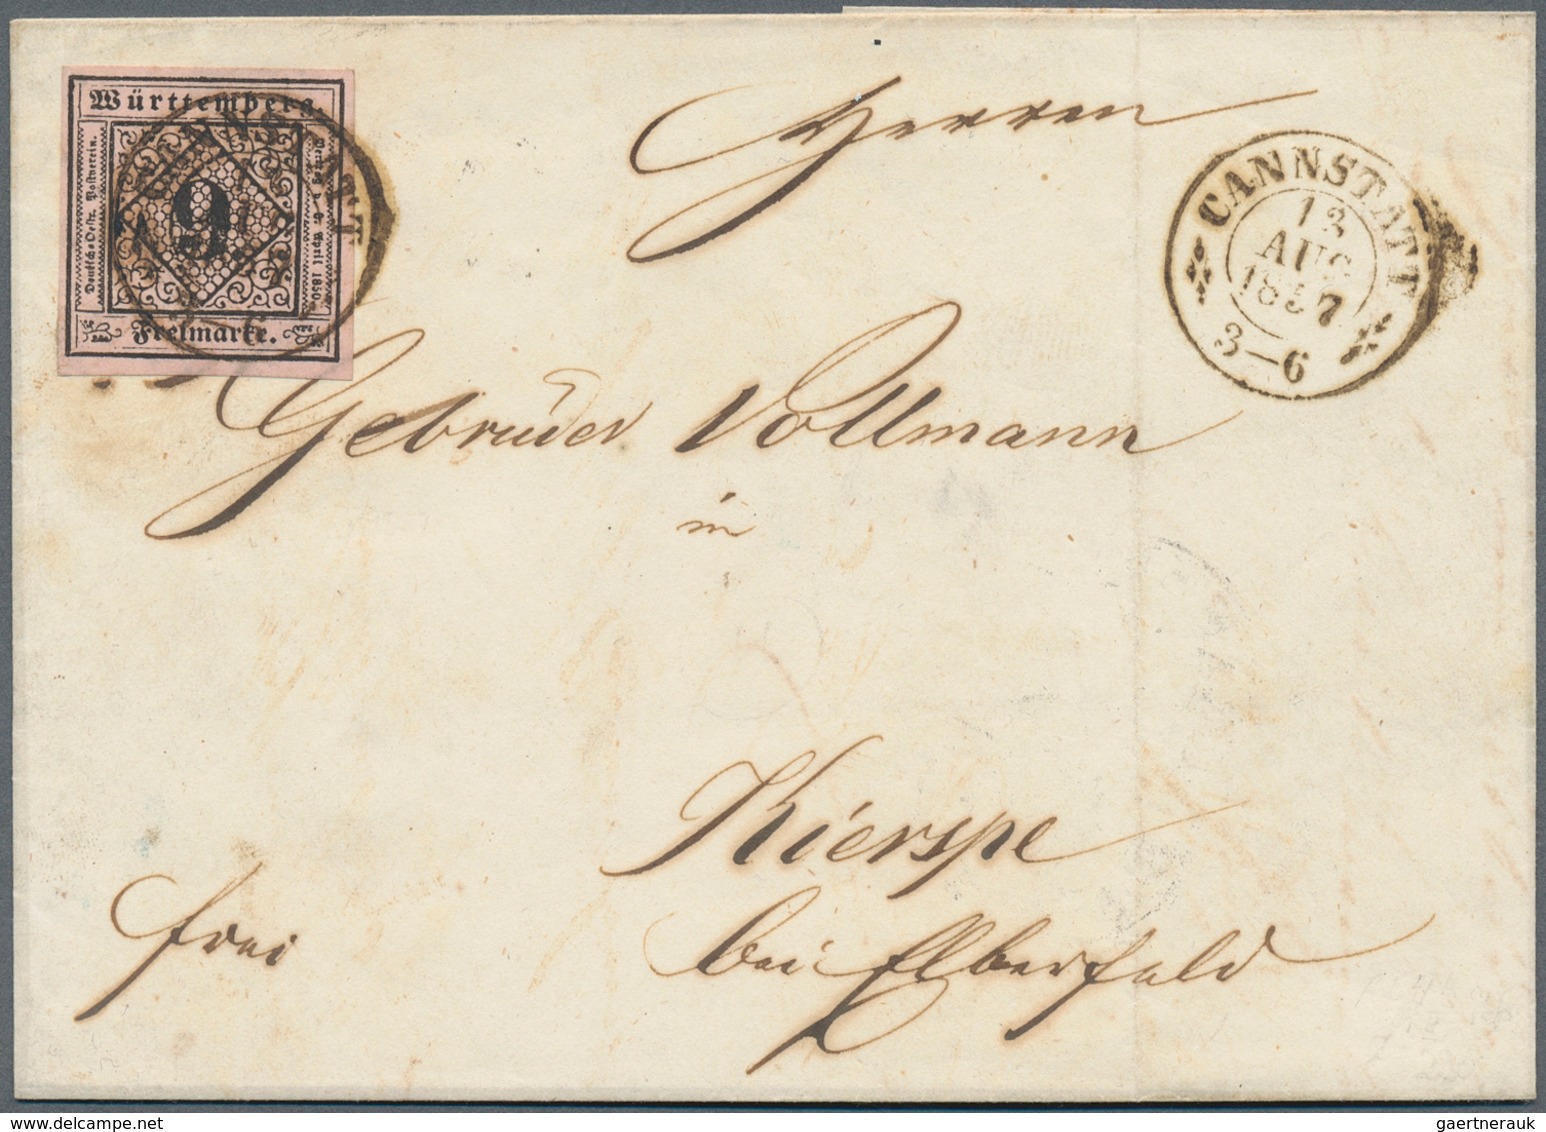 Württemberg.
Deutsch-Oestr. Postverein.
9
Vertrag v. 6. April 1850.
Freimarke.
CANNSTATT
3-6
Herren
CANNSTATT
13
AUG
1857
3-6
Gebrüder Vollmann
in
Kierspe
bei Elberfeld
frei
gaertnerauk